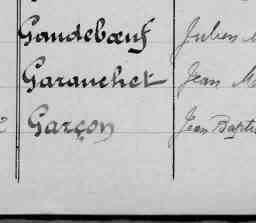 Gaudebœuf Julien
Garanchet Jean
Garçon Jean Bapti